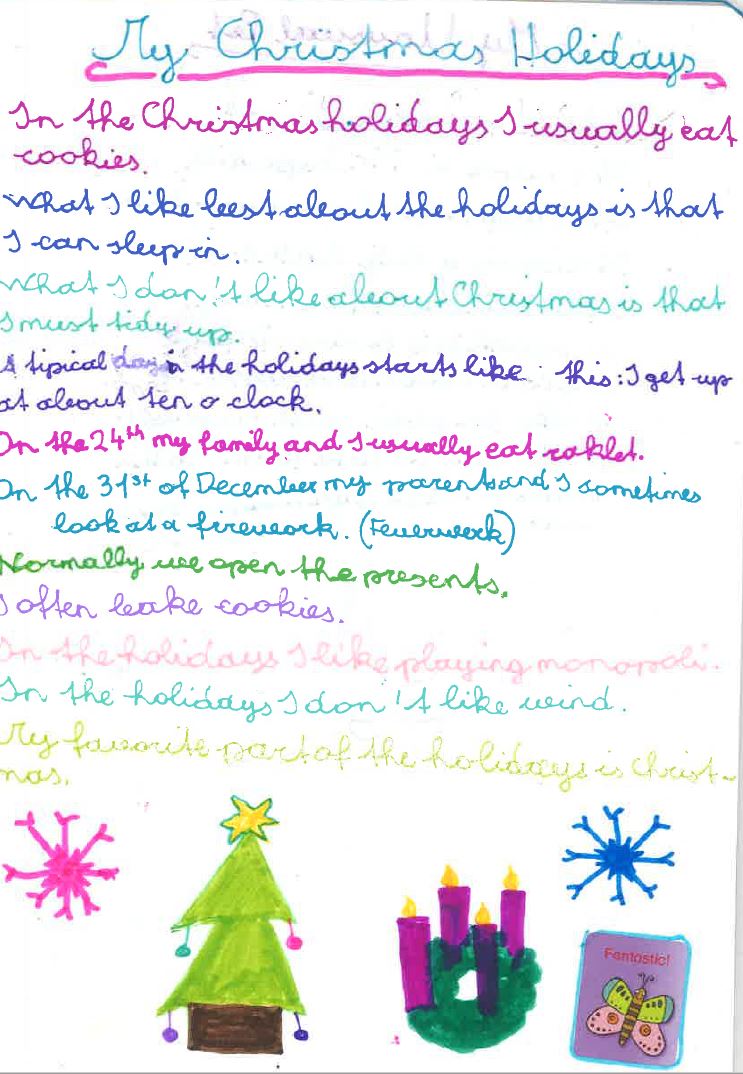 My Christmas Holidays
In the Christmas holidays I usually eat
cookies.
What I like best about the holidays is that
I can sleep in.
What I don't like about Christmas is that
I must tidy up.
A tipical day in the holidays starts like this: I get up
at about ten o clock.
On the 24th my family and I usually eat raklet.
On the 31st of December my parents and I sometimes
look at a firework. (Feuerwerk)
Normally we open the presents.
I often bake cookies.
In the holidays I like playing monopoli.
In the holidays I don't like wind.
My favorite part of the holidays is Christ-
mas.
Fantastic!